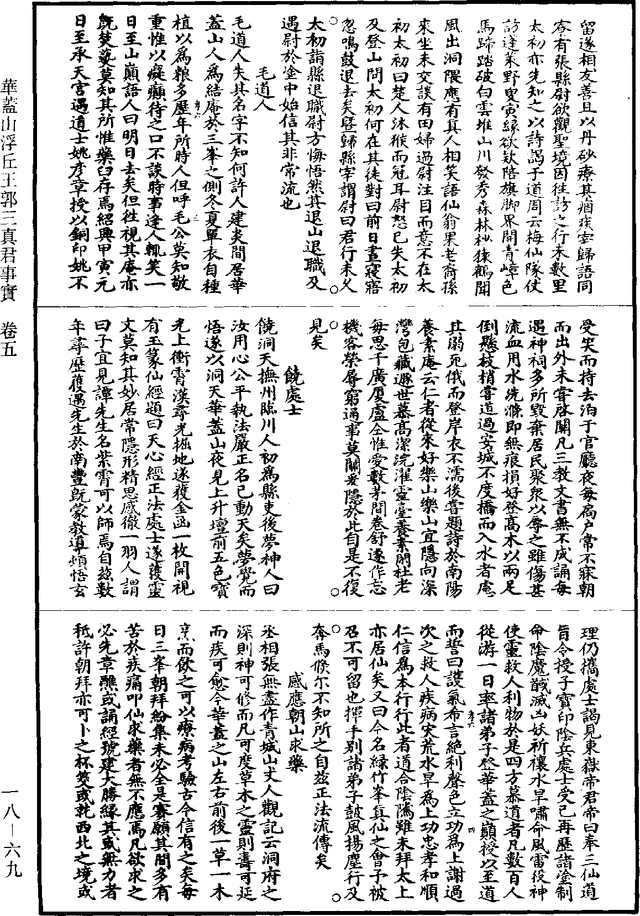 留遂相友善且以丹砂療其痼疾宰歸語同
寮有張縣尉欲觀聖境因往訪之行未數里
太初亦先知之以詩謁于道周云梅仙隊仗
訪蓬萊野叟寅緣欲欵陪旗脚界開青嶂色
馬蹄踏破白雲堆山川發秀森林杪猿鶴聞
風出洞隈應有真人相笑語仙翁果老裔孫
來坐未交談有田婦過尉注目而意不在太
初太初曰楚人沐猴而冠耳尉怒已失太初
及登山問太初何在其徒對曰前日晝寢寤
忽鳴鼓退去矣暨歸縣宰謂尉曰君行未久
太初詣縣退職尉方悔悟然其退山退職及
遇尉於塗中始信其非常流也
毛道人
毛道人失其名字不知何許人建炎間居華
蓋山人為結庵於三峯之側冬夏單衣自種
植以為粮多歷年所時人但呼毛公莫知敬
重惟以癡癲待之口不談時事逢人輒笑一
日至山巔語人曰明日去矣但往視其庵亦
旣焚爇莫知其所惟藥臼存焉紹興甲寅元
日至承天宮遇道士姚彥章授以銅印姚不
受笑而持去泊于官廳夜每扃户常不寐朝
而出外未嘗啓關凡三教文書無不成誦每
遇神祠多所毀棄居民聚衆以辱之雖傷甚
流血用水洗滌即無痕損好登高木以兩足
倒懸枝梢嘗道過安城不度橋而入水者庵
其溺死俄而登岸衣不濡後嘗題詩於南陽
養素庵云仁者從來好樂山樂山宜隱向深
灣包藏遯世慕高潔浣濯靈臺養素閑杜老
每思千廣厦盧仝惟愛數茅間卷舒遂作忘
機客榮辱窮通事莫關爰隱於此自是不復
見矣
饒處士
饒洞天撫州臨川人初為縣吏後夢神人曰
汝用心公平執法嚴正名已動天矣夢覺而
悟遂以洞天華蓋山夜見上升壇前五色寶
光上衝霄漢尋光掘地遂獲金函一枚開視
有玉篆仙經題曰天心經正法處士遂護靈
文莫知其妙居常隱形精思感徹一羽人謂
曰子宜見譚先生名紫霄可以師焉自茲數
年尋歷獲遇先生於南豐旣蒙教導煩悟玄
理仍攜處士謁見東嶽帝君帝曰奉三仙道
旨令授子寶印陰兵處士受已再歷諸塗制
命陰魔馘滅凶妖祈禳水旱嘯命風雷役神
使靈救人利物於是四方慕道者凡數百人
從游一日率諸弟子登華蓋之巔授以至道
而誓曰護氣希言絶利聲色立功為上謝過
次之救人疾病灾荒水旱為上功忠孝和順
仁信為本行行此者道合陰隲雖未拜太上
亦居仙矣又曰今名緑竹峯真仙之會予被
召不可留也揮手別諸弟子鼓風揚塵行及
奔馬倐尔不知所之自茲正法流傳矣
感應朝山求藥
丞相張無盡作青城山丈人觀記云洞府之
深則神可修而凡可度草木之靈則壽可延
而疾可愈今華蓋之山左右前後一草一木
烹而飲之可以療病考驗古今信有之矣每
日三峯朝拜紛集未必全是賽願其間多有
苦於疾痛叩仙求藥者無不應焉凡欲求之
必先章醮或誦經號建大勝緣其或無力者
秪許朝拜亦可卜之杯筊或就西北之境或
華蓋山浮丘王郭三真君事實 卷五
一八—六九